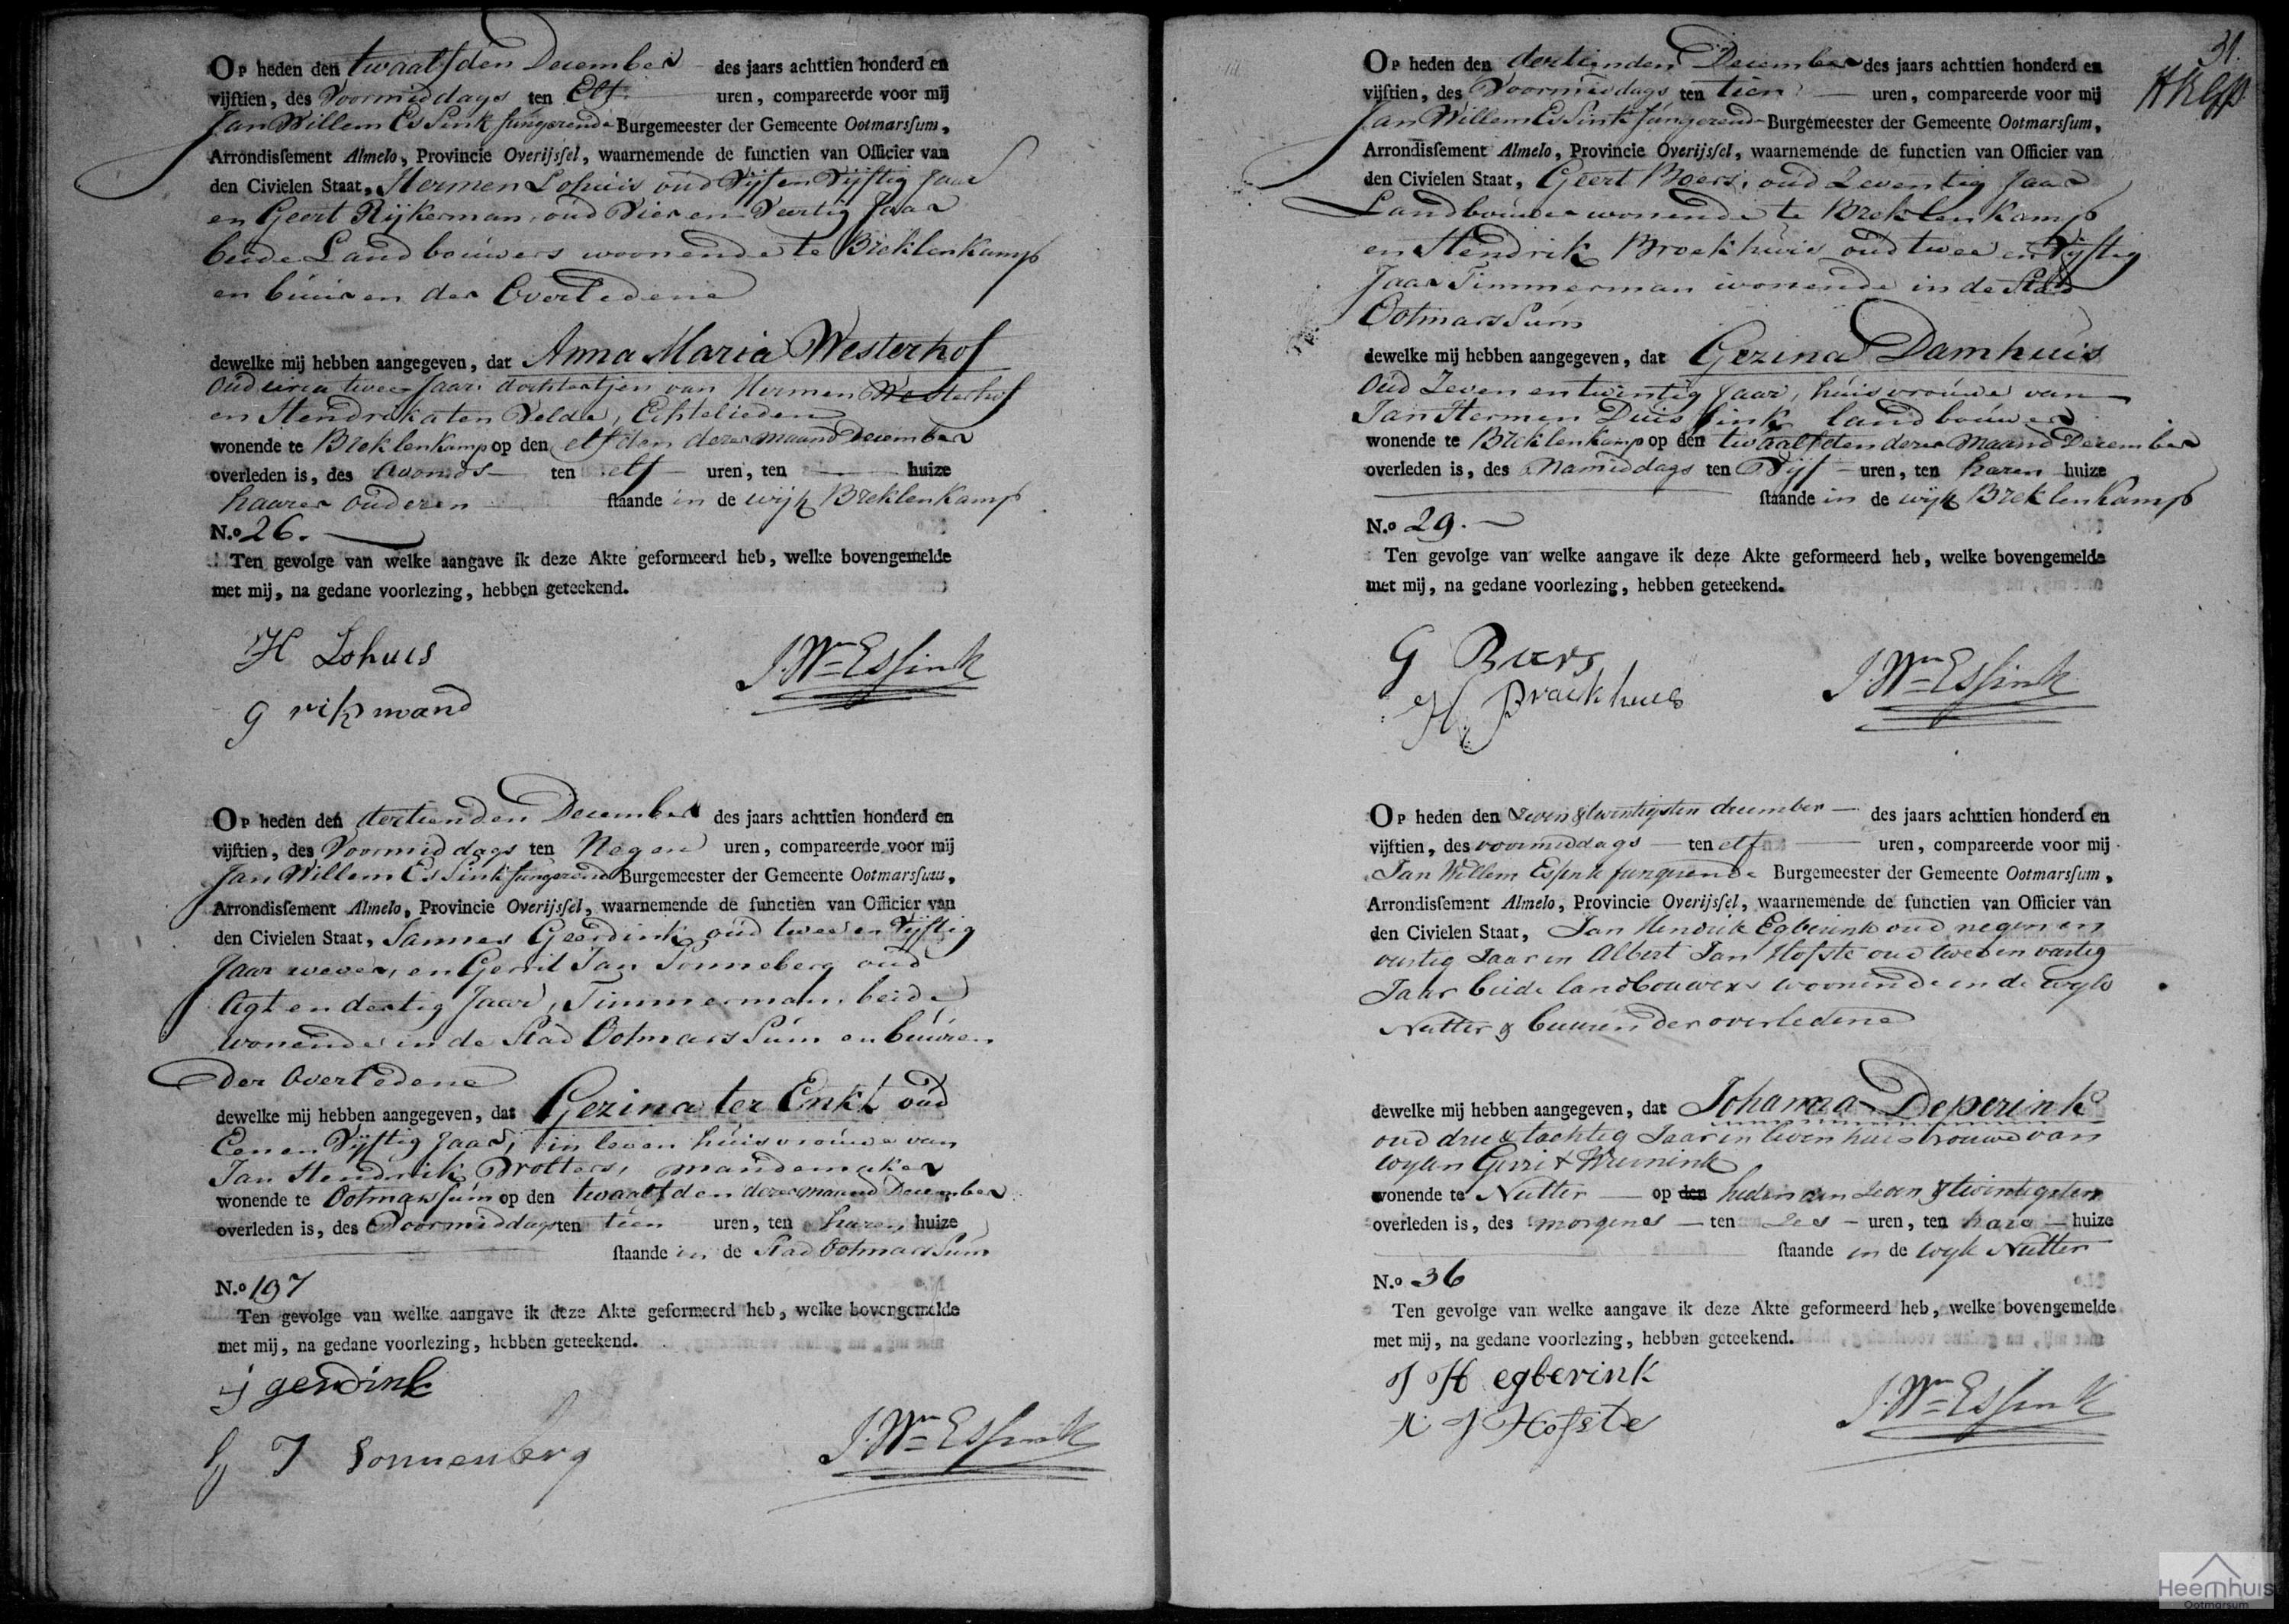 Op heden den twaalfden December des jaars achttien honderd en
vijftien, des Voormiddags ten Elf uren, compareerde voor mij
Jan Willem Essink fungerende Burgemeester der Gemeente Ootmarsſum,
Arrondisſement Almelo, Provincie Overijsſel, waarnemende de functien van Officier van
den Civielen Staat, Hermen Lohuis oud Vijf en Vijftig Jaar
en Geert Rijkerman, oud Vier en Veertig Jaar
beide Landbouwers woonende te Breklenkamp
en buuren der Overledene
dewelke mij hebben aangegeven, dat Anna Maria Westerhof
Oud circa twee Jaar, dochtertjen van Hermen Westerhof
en Hendrika ten Velde, Echtelieden
wonende te Breklenkamp op den elfden dezer maand December
overleden is, des avonds ten elf uren, ten huize
haarer ouderen ſtaande in de wijk Breklenkamp
N.o 26.
Ten gevolge van welke aangave ik deze Akte geformeerd heb, welke bovengemelde
met mij, na gedane voorlezing, hebben geteekend.
H Lohues
J. Wm Essink
G rikmand
Op heden den dertienden December des jaars achttien honderd en
vijftien, des Voormiddags ten Negen uren, compareerde voor mij
Jan Willem Essink fungerende Burgemeester der Gemeente Ootmarsſum,
Arrondisſement Almelo, Provincie Overijsſel, waarnemende de functien van Officier van
den Civielen Staat, Jannes Geerdink oud twee en Vijftig
Jaar wever, en Gerrit Jan Sonneberg oud
Agt en dertig Jaar, Timmerman, beide
wonende in de Stad Ootmarssum en buuren
der Overledene
dewelke mij hebben aangegeven, dat Gezina ter Enkt oud
Een en Vijftig Jaar, in leven huisvrouwe van
Jan Hendrik Brolters, mandemaker
wonende te Ootmarssum op den twaalfden dezer maand December
overleden is, des Voormiddags ten tien uren, ten haren huize
ſtaande in de Stad Ootmarssum
N.o 197
Ten gevolge van welke aangave ik deze Akte geformeerd heb, welke bovengemelde
met mij, na gedane voorlezing, hebben geteekend.
j gerdink
G J Sonnenberg
J. Wm Essink
31.
Op heden den dertienden December des jaars achttien honderd en
vijftien, des Voormiddags ten tien uren, compareerde voor mij
Jan Willem Essink fungerende Burgemeester der Gemeente Ootmarsſum,
Arrondisſement Almelo, Provincie Overijsſel, waarnemende de functien van Officier van
den Civielen Staat, Geert Boers, oud Zeventig Jaar
Landbouwer wonende te Breklenkamp
en Hendrik Broekhuis oud twee en Vijftig
Jaar Timmerman wonende in de Stad
Ootmarssum
dewelke mij hebben aangegeven, dat Gezina Damhuis
Oud Zeven en twintig Jaar, huisvrouwe van
Jan Hermen Duissink landbouwer
wonende te Breklenkamp op den twaalfden dezer maand December
overleden is, des Namiddags ten Vijf uren, ten haren huize
ſtaande in de wijk Breklenkamp
N.o 29.
Ten gevolge van welke aangave ik deze Akte geformeerd heb, welke bovengemelde
met mij, na gedane voorlezing, hebben geteekend.
G Buers
H. Braekhues
J. Wm Essink
Op heden den zeven & twintigsten december des jaars achttien honderd en
vijftien, des voormiddags ten elf uren, compareerde voor mij
Jan Willem Essink fungerende Burgemeester der Gemeente Ootmarsſum,
Arrondisſement Almelo, Provincie Overijsſel, waarnemende de functien van Officier van
den Civielen Staat, Jan Hendrik Egberink oud negen en
vertig Jaar en Albert Jan Hofste oud twee en vertig
Jaar beide landbouwers woonende in de wyk
Nutter & buuren der overledene
dewelke mij hebben aangegeven, dat Johanna Deperink
oud drie & tachtig Jaar in leven huisvrouwe van
wylen Gerrit Wunnink
wonende te Nutter op den heden den zeven & twintigsten
overleden is, des morgenes ten zes uren, ten hare huize
ſtaande in de wyk Nutter
N.o 36
Ten gevolge van welke aangave ik deze Akte geformeerd heb, welke bovengemelde
met mij, na gedane voorlezing, hebben geteekend.
J H egberink
A J Hofste
J. Wm Essink
Heemhuis
Ootmarsum